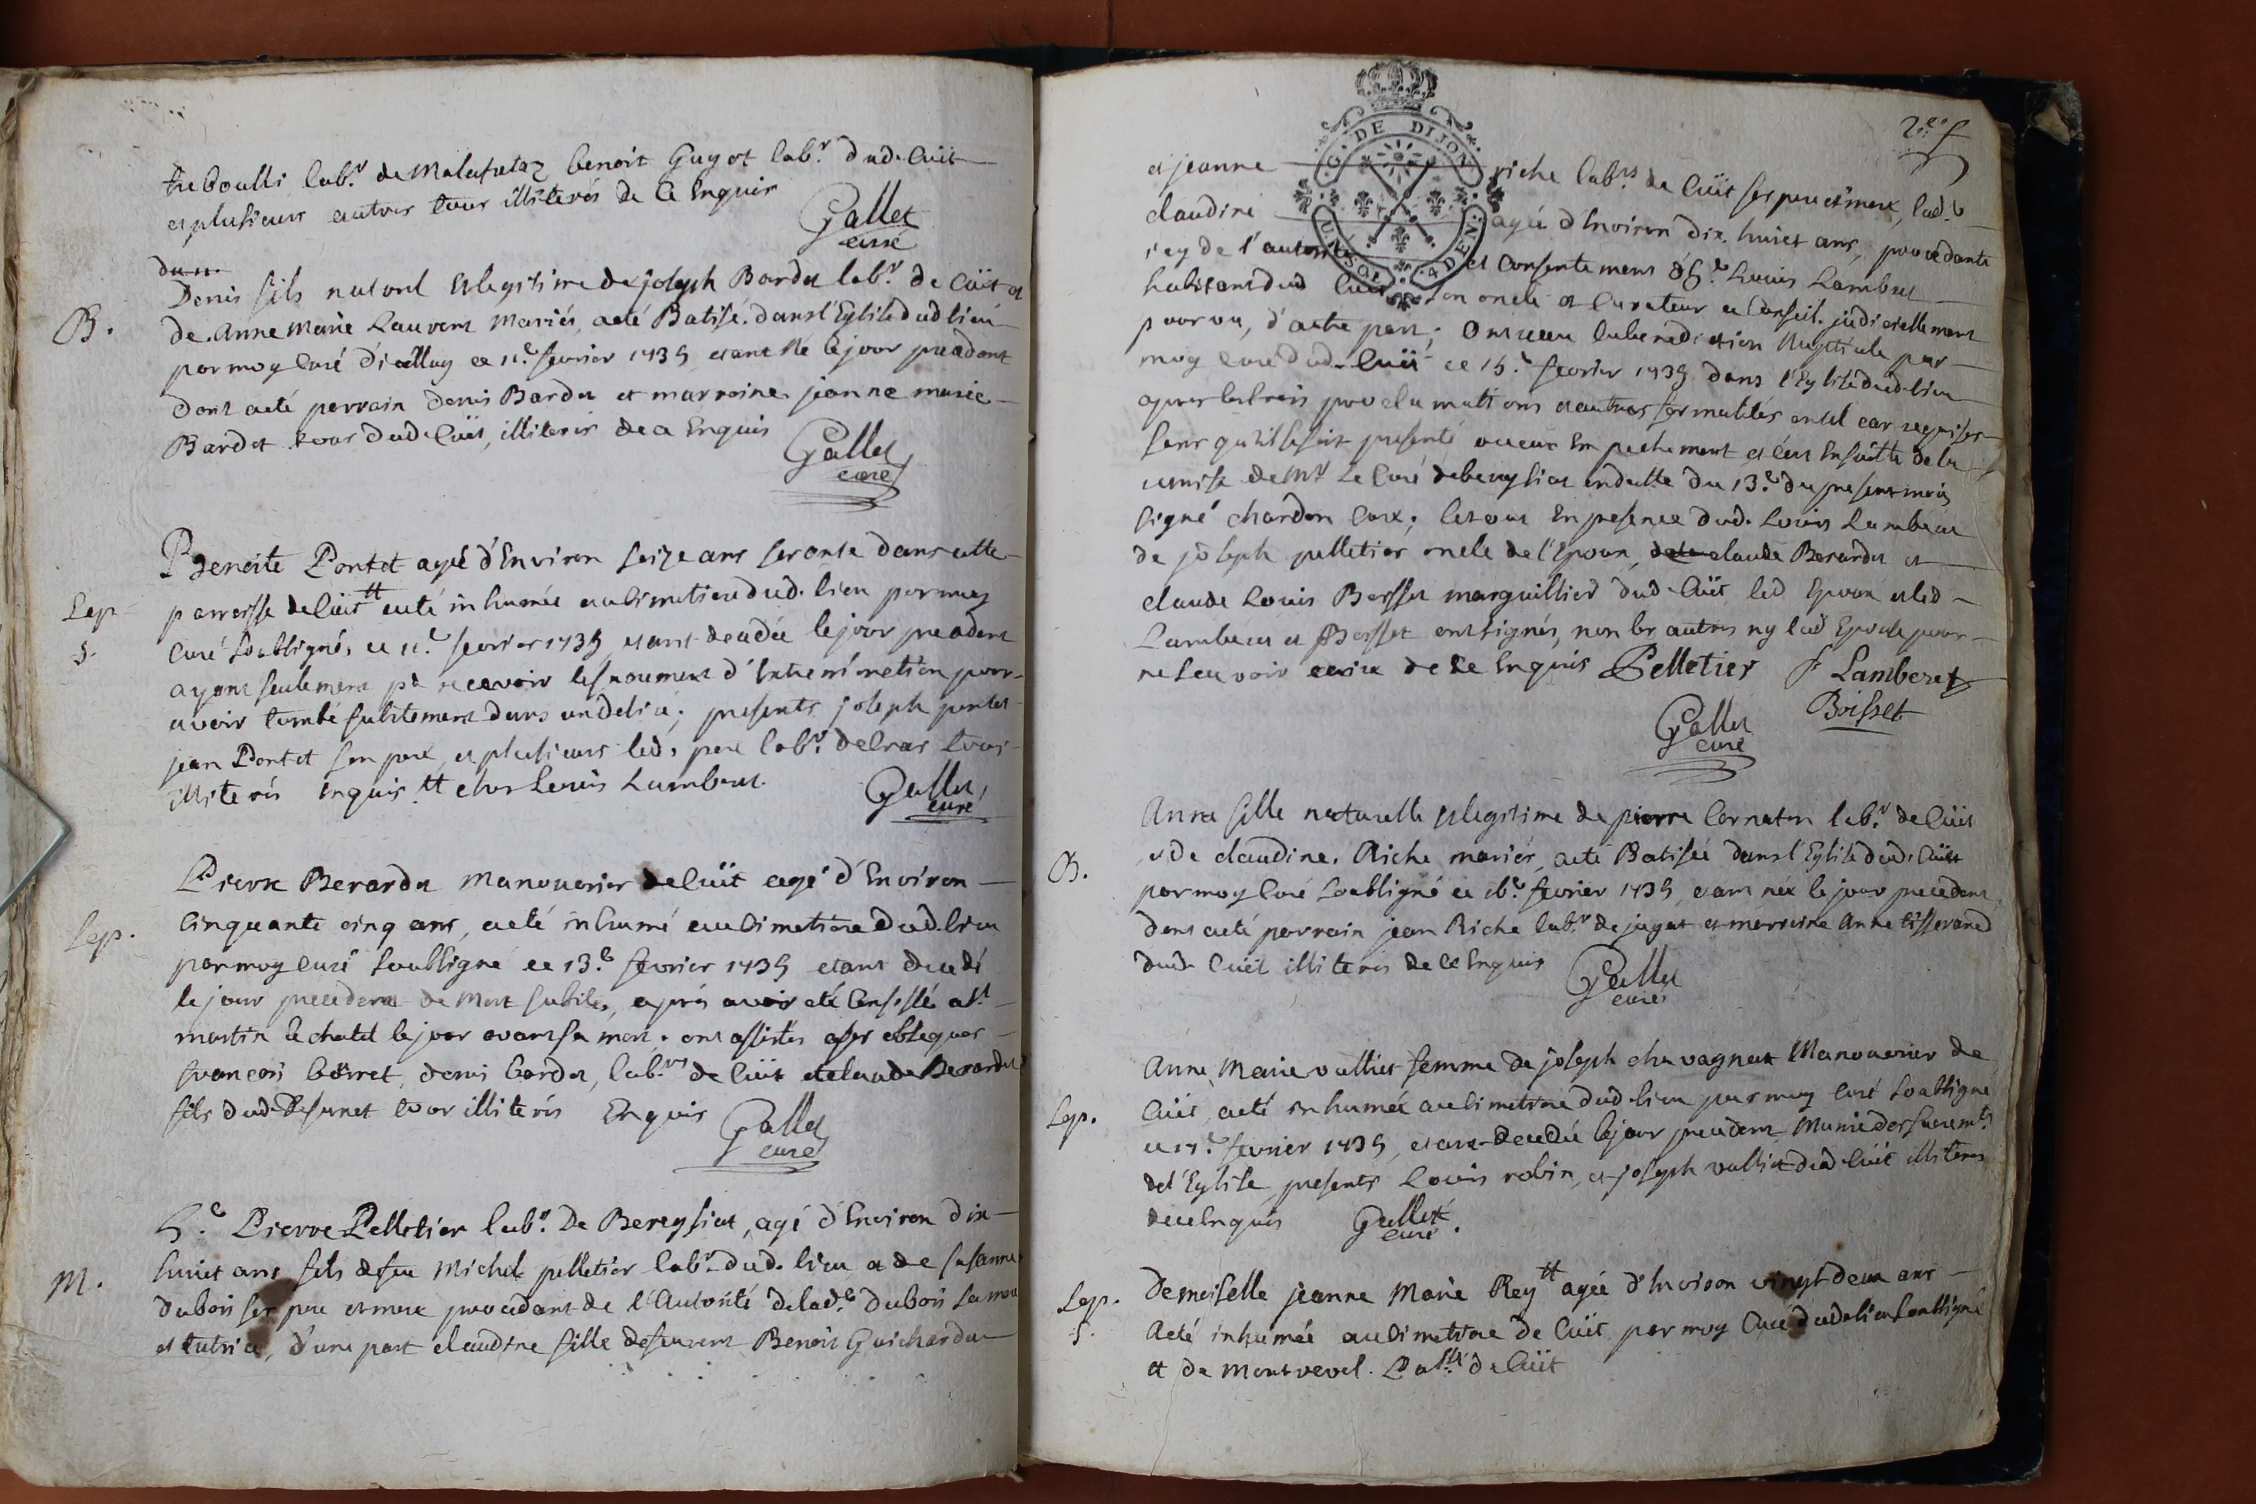 treboulli lab.r de Malafretaz benoit Guyot lab.r dud. Cuët
et plusieurs autres tous illiterés de ce Enquis
Gallet
curé
du 11.
Denis fils naturel et legitime de joseph Bardet lab.r de Cuët et
B.
de Anne Marie Lauvent Mariés, a eté Batisé dans l'Eglise dud lieu
par moy Curé d'icelluy ce 11.e fevrier 1735 etant né le jour precedent
dont a eté parrain denis Bardet et marraine jeanne marie
Bardet tous dud Cuët, illiterés de ce Enquis
Gallet
curé
Benoite Pontet agée d'Environ seize ans servante dans cette
Sep
parroisse de Cuët tt a eté inhumée au Cimetiere dud. lieu par moy
S.
Curé Soubsigné, ce 11.e fevrier 1735, etant decedée le jour precedent
ayant seulement pû recevoir le sacrement d'Extremonction pour
avoir tombé subitement dans un delire; presents joseph pontet
jean Pontet son pere, et plusieurs led. pere lab.r de tous
illiterés Enquis tt chez Louis Lambert.
Gallet
curé
Pierre Berardet Manouvrier de Cuët agé d'Environ
Sep.
Cinquante cinq ans, a eté inhumé au Cimetiere dud. lieu
par moy Curé Soubsigné ce 13.e fevrier 1735 etant decedé
le jour precedent de Mort subite, aprés avoir eté Confessé a St
martin le chatel le jour avant sa mort. ont assistés a ses obseques
françois boirret, denis bardet, lab.rs de Cuët et claude Berardet
fils dud Defunct tous illiterés Enquis
Gallet
curé
S.r Pierre Pelletier lab.r De Bereysiat, agé d'Environ dix
M.
huict ans fils de feu Michel pelletier lab.r dud. lieu et de susanne
dubois ses pere et mere procedant de l'Autorité de lad.e dubois sa mere
et tutrice, d'une part claudine fille de feu Benoit Guichardet
2.e f
et jeanne riche lab.rs de Cuët ses pere et mere, lad.e
claudine agée d'Environ dix huict ans, procedante
icy de l'autorité et Consentement d'h.e Louis Lambert
habitant dud Cuët son oncle et Curateur et Conseil judiciellement
pourvu, d'autre part; Ont receu la benediction Nuptiale par
moy Curé dud. Cuët ce 15.e fevrier 1735 dans l'Eglise dud. lieu
apres les trois proclamations et autres formalités en tel cas requises
sans qu'il se soit presenté aucun Empechement et c'eu Ensuitte de la
remise de Mr Le Curé de bereysiat en datte du 13.e du present mois
signé chardon Curé; le tout En presence dud. Louis Lambert
de joseph pelletier oncle de l'Epoux, claude Berardet et
claude Louis Boisset marguillier dud. Cuët, led Epoux et led
Lambert et Boisset ont signés, non les autres ny lad Epouse pour
ne sçavoir ecrire de ce Enquis Pelletier Lamberet
Boisset
Gallet
curé
Anne fille naturelle et legitime de pierre Cornaton lab.r de Cuët
et de claudine Riche mariés, a eté Batisée dans l'Eglise dud. Cuët
B.
par moy Curé Soubsigné ce 16.e fevrier 1735, etant née le jour precedent
dont a eté parrain jean Riche lab.r de jayat et marraine Anne tisserand
dud. Cuët illiterés de ce Enquis
Gallet
curé
Anne Marie vulliet femme de joseph chavagneux Manouvrier de
Sep.
Cuët, a eté inhumée au Cimetiere dud lieu par moy Curé Soubsigné
ce 17.e fevrier 1735, etant decedée le jour precedent Munie des sacrem.ts
de l'Eglise, presents Louis robin, et joseph vulliet dud Cuët illiterés
de ce Enquis
Gallet
curé.
Demoiselle jeanne Marie Rey tt agée d'Environ vingt deux ans
Sep.
A eté inhumée au Cimetiere de Cuët par moy Curé dud. lieu Soubsigné
S.
tt de Montrevel. de Cuët